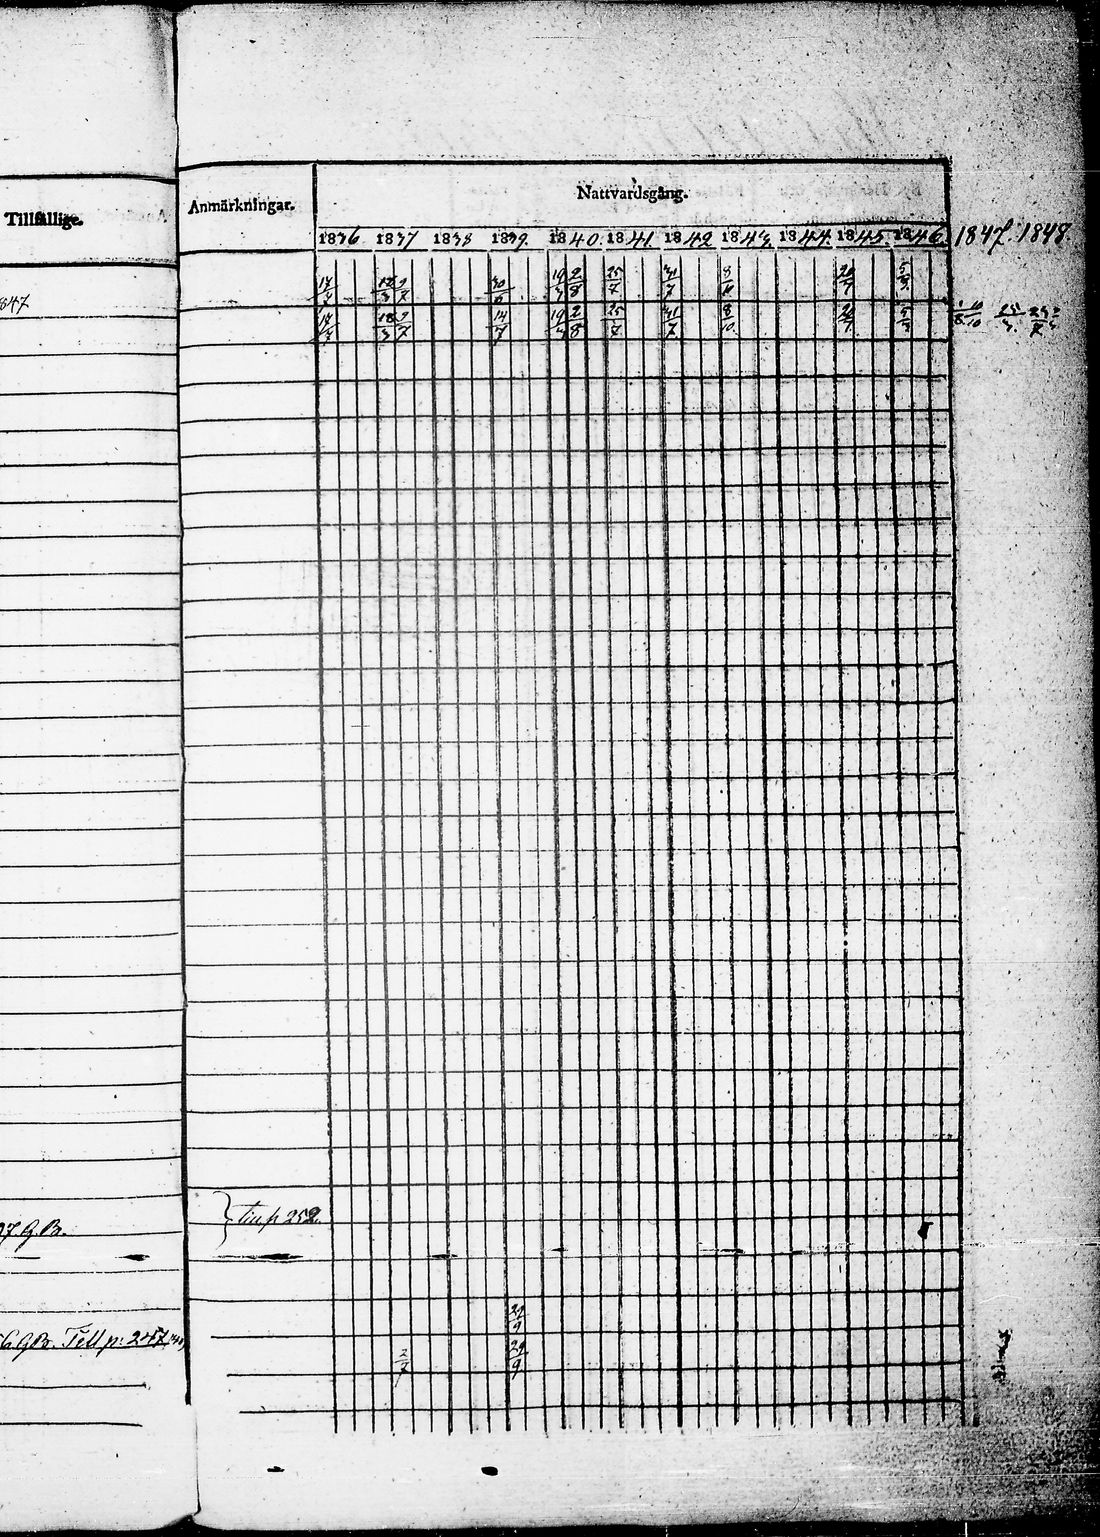 Tillfällige.
Anmärkningar.
Nattvardsgång.
1836 1837 1838 1839. 1840. 1841. 1842 1843. 1844. 1845. 1846. 1847. 1848.
847
17/7 9/7 30/6 19/4 2/8 25/7 31/7 8/10 20/7 5/9
17/7 18/3 9/7 14/7 19/4 2/8 25/7 31/7 8/10 20/7 5/9
37. G.B.
p 252.
29/9
6. G.B. Till p: 247
2/7 29/9